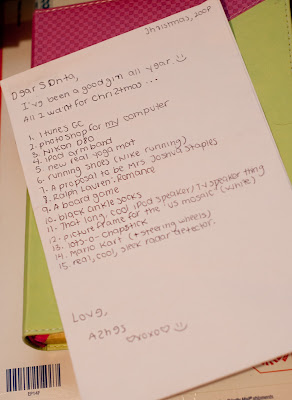 Christmas, 2008
Dear Santa,
I've been a good girl all year
All I want for Christmas ...
1. itunes GC
2. photoshop for my computer
3. Nikon D80
4. ipod armband
5. new real yoga mat
6. running shoes (Nike running)
7. A proposal to be Mrs. Joshua Staples
8. Ralph Lauren - Romance
9. A board game
10. black ankle socks
11. That long, cool ipod speaker/TV speaker thing
12. picture frame for the "US mosaic" (white)
13. lots-o-Chapstick
14. Mario Kart (+ steering wheels)
15. real, cool, sleek radar detector.
Love,
xoxo